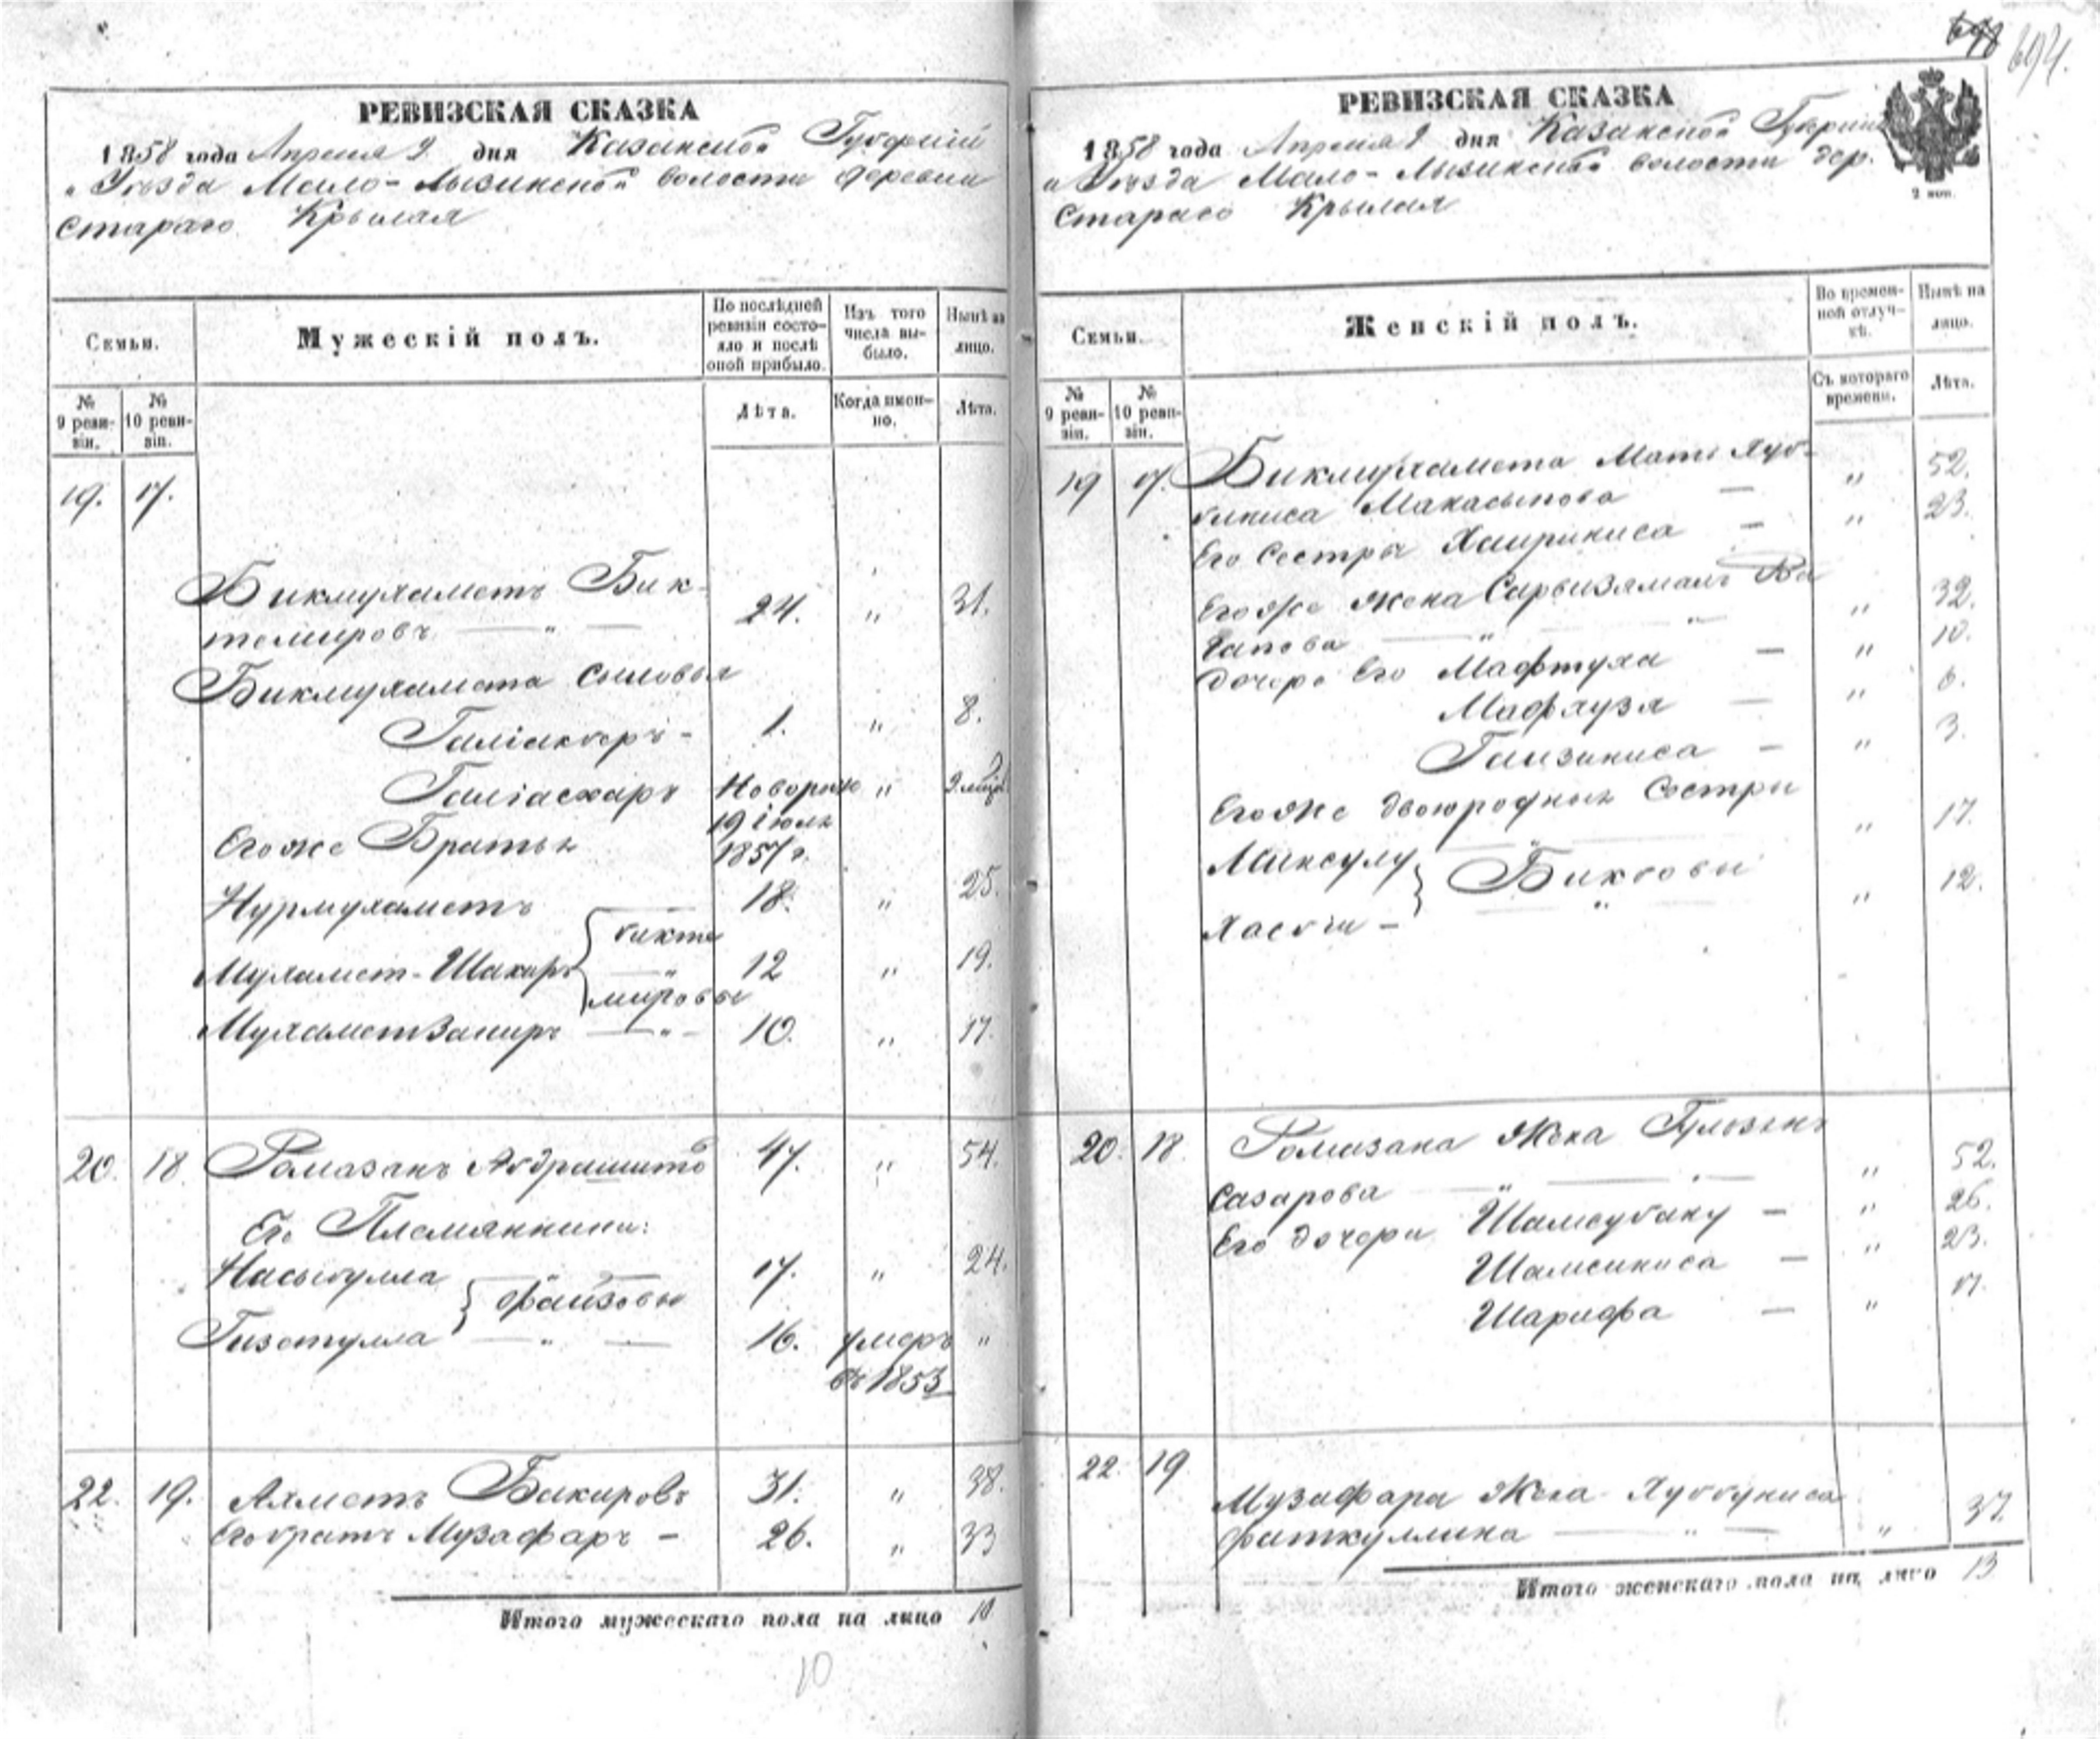 694.
РЕВИЗСКАЯ СКАЗКА
1858 года Апреля 2 дня Казанской Губерніи
и Уѣзда Мало-Лызинской волости деревни
Стараго Крылая
Семьи.
Мужескій полъ.
По послѣдней ревизіи состояло и послѣ оной прибыло.
Изъ того числа выбыло.
Нынѣ на лицо.
№ 9 ревизіи.
№ 10 ревизіи.
Лѣта.
Когда именно.
Лѣта.
19. 17.
Бикмухаметъ Бик-
темировъ — " — 24. " 31.
Бикмухамета сыновья
Галіакберъ - 1. " 8.
Галіаскаръ Новорож " 9 мѣс.
19 іюля
1857 г.
Его же Братья
Нурмухаметъ 18. " 25.
бикте
Мухамет-Шакиръ 12 " 19.
мировы
МухаметЗакиръ — " - 10. " 17.
20. 18 Рамазанъ Абдрашитов 47. " 54.
Его Племянники:
Насыбулла 17. " 24.
Фаизовы
Гизетулла — " — 16. умеръ "
въ 1853
22. 19. Ахметъ Бакировъ 31. " 38.
Его братъ Музафаръ - 26. " 33
Итого мужескаго пола на лицо 10
10
РЕВИЗСКАЯ СКАЗКА
1858 года Апреля 2 дня Казанской Губерніи
и Уѣзда Мало-Лызинской волости дер.
Стараго Крылая
2 коп.
Семьи.
Женскій полъ.
Во временной отлучкѣ.
Нынѣ на лицо.
№ 9 ревизіи.
№ 10 ревизіи.
Съ котораго времени.
Лѣта.
19 17. Бикмухамета Мать Хуб-
биниса Макасыпова — " 52.
Его Сестра Хаириниса — " 23.
Его же жена Сарвизямалъ Ва
гапова — " — " 32.
дочери Его Мафтуха — " 10.
Мафруза — " 6.
Гаизиниса — " 3.
Его же двоюродныя Сестры
Минсулу " 17.
Биктовы
Хасби - " 12.
20. 18. Рамазана Жена Гульзянъ
Сагарова — " — " 52.
Его дочери Шамсубану — " 26.
Шамсиниса — " 23.
Шарифа — " 17.
22. 19 Музафара Жена Хуббуниса
Фаткуллина — " — " 37.
Итого женскаго пола на лицо 13